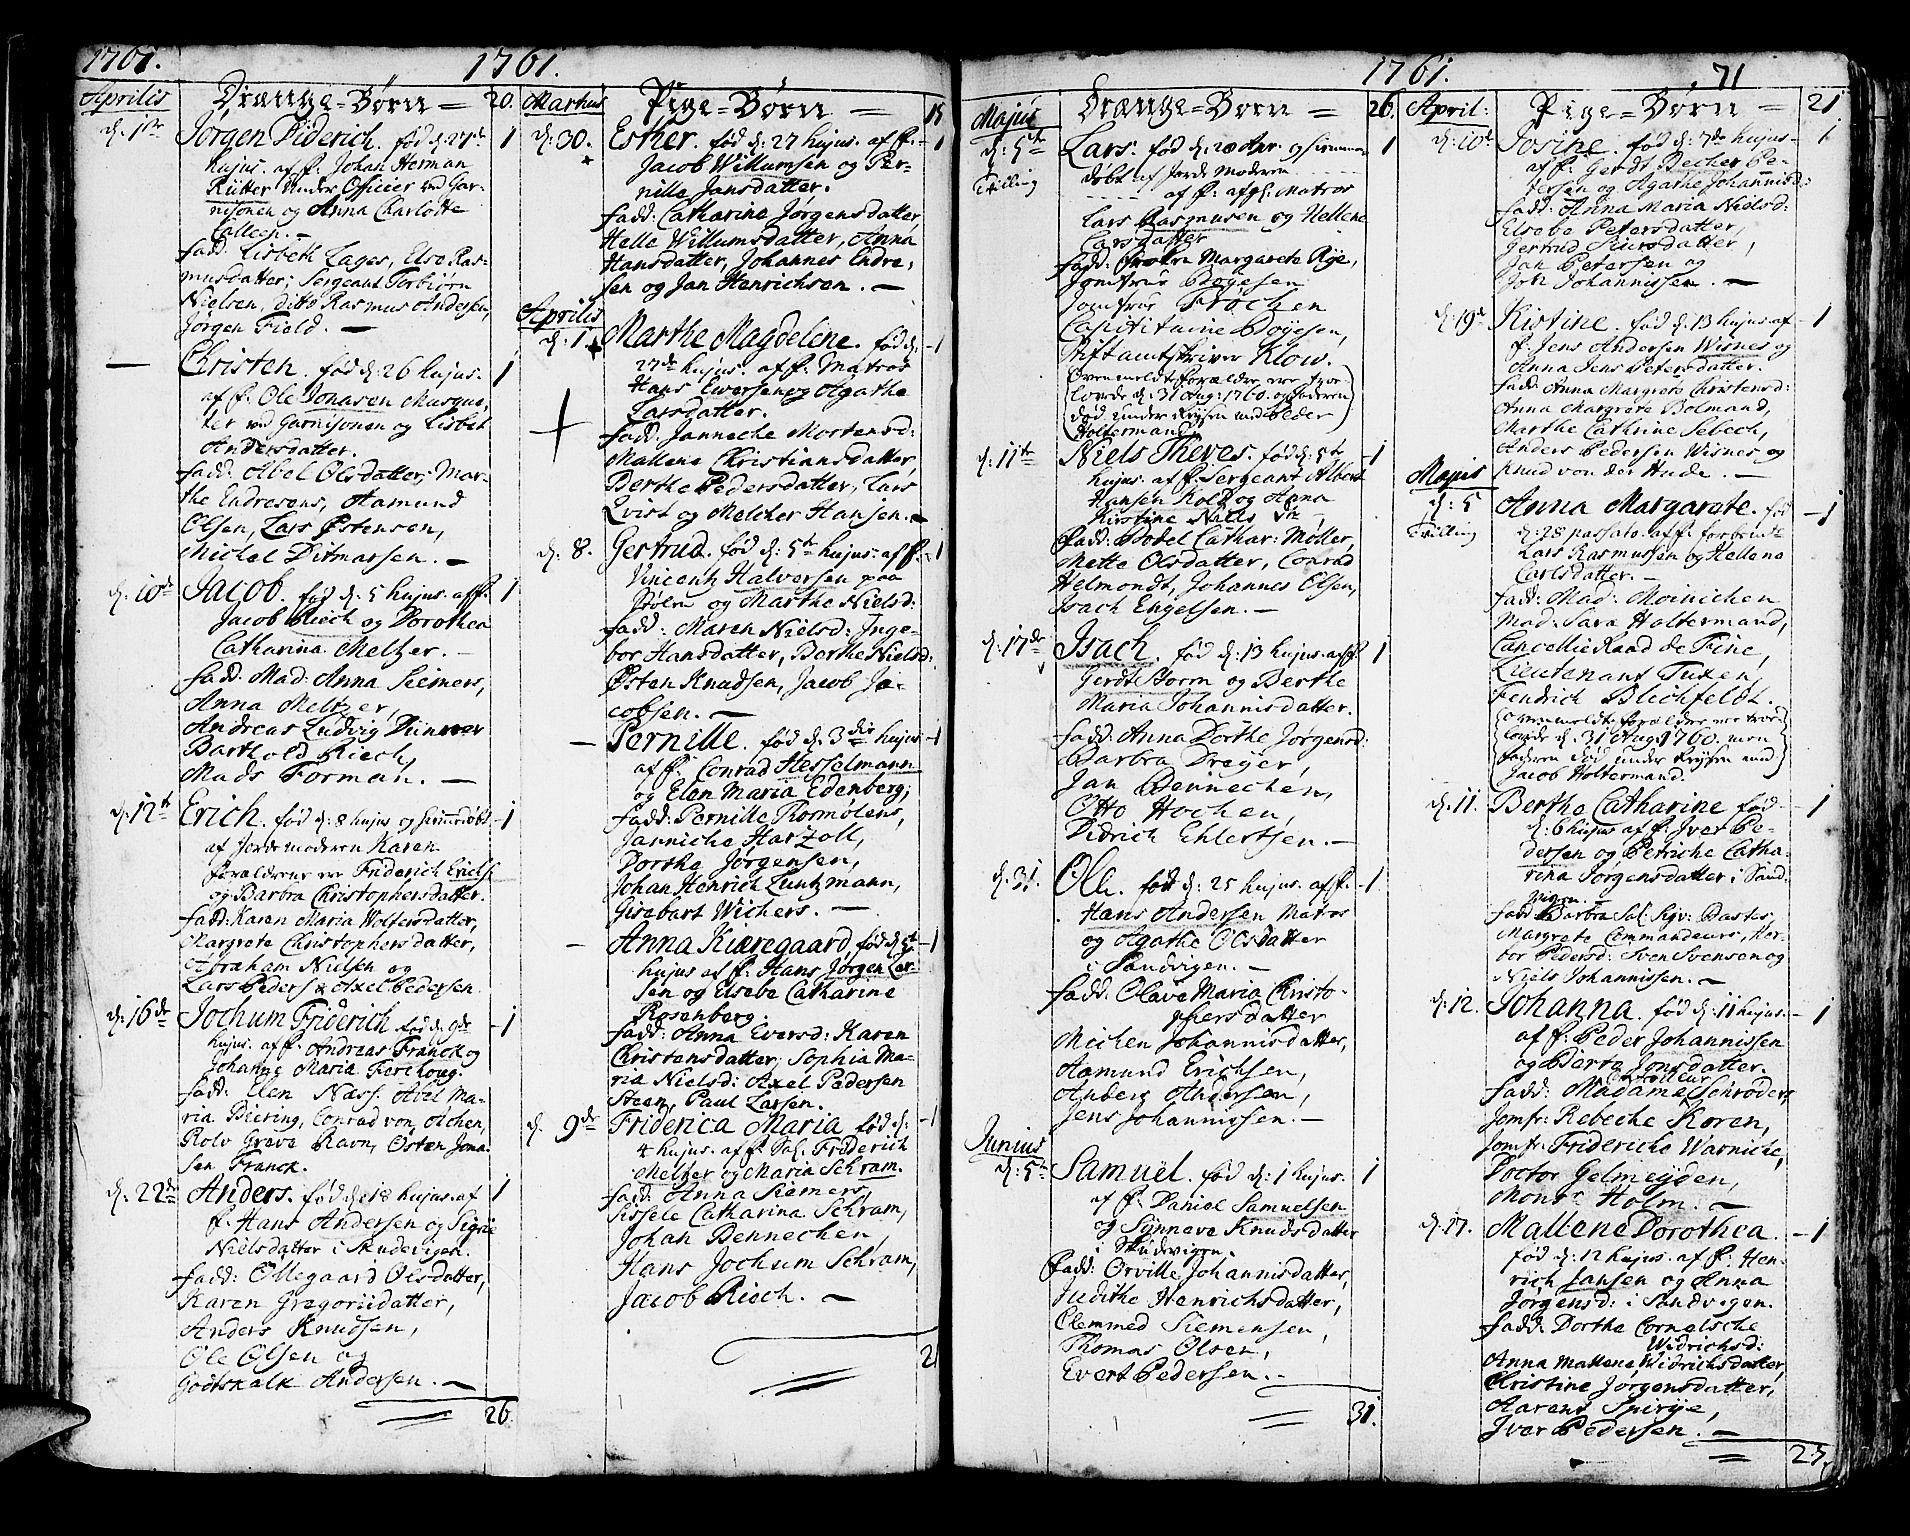 1761.
1761.
Aprilis
Drænge-Børn — 20.
d. 1te
Jørgen Diderich. fød d. 27de 1
hujus. af f. Johan Herman
Rütter Under Officier ved Gar-
nisonen og Anna Charlotte
Callech. —
fadd: Lisbeth Lages, Else Ras-
musdatter; Sergeant Torbiørn
Nielsen, ditto Rasmus Andersen,
Jørgen Fiold. —
— Christen. fød d. 26 hujus. 1
af f. Ole Jonasen Musque-
ter ved Garnisonen og Lisbet
Andersdatter.
fadd: Abel Olsdatter, Mar-
the Endresens, Aamund
Olsen, Lars Østensen,
Michel Ditmarsen. —
d. 10de Jacob. fød d. 5 hujus. af f. 1
Jacob Riech og Dorothea
Catharina Meltzer. —
fadd. Mad: Anna Siemers,
Anna Meltzer,
Andreas Ludvig Dünner
Barthold Riech,
Mads Forman. —
d. 12te Erich. fød d. 8 hujus og hiemedøbt 1
af Jordemoderen Karen
Forældrene ere Friderich Erichs.
og Barbra Christophersdatter.
fadd: Karen Maria Woltersdatter,
Margrete Christophersdatter,
Abraham Nielsen og
Lars Peders & Axel Pedersen
d. 16de Jochum Friderich fød d. 9de 1
hujus. af f. Andreas Franck og
Johanne Maria Ferchoug.
fadd: Elen Næss. Abel Ma-
ria Biering, Conrad von Achen,
Rolv Greve Ravn, Osten Jona-
sen Franck.
d. 22de Anders. fød d. 18 hujus. af 1
f. Hans Andersen og Signe
Nielsdatter i Skudevigen.
fadd: Ollegaard Olsdatter,
Karen Gregoriidatter,
Anders Knudsen,
Ole Olsen og
Godtskalk Andersen. —
26.
Marhus
Pige-Børn — 15
d. 30. Esther. fød d. 27 hujus. af f. 1
Jacob Willumsen og Per-
nille Jansdatter.
fadd: Catharine Jørgensdatter,
Helle Willumsdatter, Anna
Hansdatter, Johannes Endre-
sen og Jan Henrichsen. —
Aprilis
d. 1 Marthe Magdelene. fød d. 1
27de hujus. af f. Matros
Hans Ewersen og Agathe
Larsdatter.
fadd: Janneche Mortensd:
Mallene Christiansdatter,
Berthe Pedersdatter, Lars
Qvist og Melcher Hansen. —
d. 8. Gertrud. fød d. 5te hujus. af f. 1
Vincentz Halversen paa
Stølen og Marthe Nielsd:
fadd: Maren Nielsd: Inge-
bor Hansdatter, Berthe Nielsd:
Østen Knudsen, Jacob Ja-
cobsen. —
— Pernille. fød d. 3die hujus 1
af f. Conrad Hesselmann
og Elen Maria Edenberg;
fadd: Pernille Rosmølens,
Janniche Harzoll,
Dorthe Jørgensen,
Johan Henrich Luntzmann,
Gisebart Wichers. —
— Anna Kiæregaard, fød d. 5te 1
hujus af f. Hans Jørgen Lar-
sen og Elsebe Catharine
Rosenberg.
fadd: Anna Eversd: Karen
Christensdatter, Sophia Ma-
ria Nielsd: Axel Pedersen
Steen, Paul Larsen.
d. 9de Friderica Maria fød d. 1
4 hujus. af f. Sal. Friderich
Meltzer og Maria Schram.
fadd: Anna Siemers,
Sissele Catharina Schram,
Johan Bennechen,
Hans Jochum Schram,
Jacob Riech. —
21
1761. 71
Majus
Drænge-Børn — 26.
d. 5te
Tvilling
Lars. fød og hiemme- 1
døbt af Jorde Moderen
af f. afg: Matros
Lars Rasmusen og Hellene
Carsdatter
fadd: Margarete Rye,
Jomfrue Bøyesen
Jomfrue
Capititaine Bøyesen,
Stiftamtskriver Klow.
Ovenmeldte Forældre ere trov-
lovede d. 31 Aug: 1760. og faderen
død under Reysen med Peder
Holtermand.
d. 11te Niels Theves. fød d. 5te 1
hujus. af f. Sergeant Albert
Hansen Kold og Anna
Kirstine Niels Dr
fadd: Bodel Cathar: Møller,
Mette Olsdatter, Conrad
Helmondt, Johannes Olsen,
Isach Engelsen. —
d. 17de Isach. fød d. 13 hujus. af f. 1
Gerdt Storm og Berthe
Maria Johannisdatter.
fadd: Anna Dorthe Jørgensd:
Barbra Dreyer,
Jan Bennechen,
Otto Hochen,
Didrich Ehlertsen. —
d. 31. Olle. fød d. 25 hujus. af f. 1.
Hans Andersen Matros
og Agathe Olsdatter
i Sandvigen. —
fadd: Olave Maria Christo-
phersdatter
Michen Johannisdatter,
Aamund Erichsen,
Anberg Andersen,
Jens Johannissen. —
Junius
d. 5te Samuel. fød d. 1 hujus. 1
af f. Daniel Samuelsen
og Synneve Knudsdatter
i Skudvigen.
fadd: Orville Johannisdatter,
Judithe Henrichsdatter,
Clemmed Siemensen,
Thomas Olsen,
Evert Pedersen. —
31.
April:
Pige-Børn — 21
d. 10de Josine. fød d. 7de hujus 1
af f. Gerdt Becher Pe-
tersen og Agathe Johannisd:
fadd: Anna Maria Nielsd:
Elsebe Petersdatter,
Gertrud Siursdatter,
Jan Petersen og
Joh: Johannissen. —
d. 19de Kistine. fød d. 13 hujus af 1
f. Jens Andersen Wisnes og
Anna Jens Petersdatter.
fadd: Anna Margrete Christensd:
Anna Margrete Bolmand,
Marthe Cathrine Sebech,
Anders Pedersen Wisnes og
Knud von der Hude. —
Majus
d. 5
Tvilling
Anna Margarete. fød 1
d. 28 passato. af f. forbemte
Lars Rasmussen og Hellena
Carlsdatter. —
fadd: Mad: Moinichen
Mad: Sara Holtermand,
CancellieRaad de Fine,
Lieutenant Tuxen,
Fendrich Blichfeldt.
Ovenmeldte forældre ere trov-
lovede d. 31 Aug: 1760. men
faderen død under Reysen med
Jacob Holtermand.
d. 11. Berthe Catharine fød 1
d. 6 hujus af f. Iver Pe-
dersen og Petriche Catha-
rina Jørgensdatter i Sand-
vigen. —
fadd: Barbra Sal: Sigv: Dastes,
Margrete Commandeurs, Kar-
bor Pedersd: Sven Svensen og
Niels Johannissen. —
d. 12. Johanna. fød d. 11 hujus. 1
af f: Peder Johannissen
og Berta Jonsdatter.
fadd: Madame Schrøder,
Jomfr: Rebecke Koren,
Jomfr: Frideriche Warniche,
Doctor Gelmeyden,
Monsr Holm. —
d. 17. Mallene Dorothea. 1
fød d. 12 hujus. af f: Hen-
rich Jansen og Anna
Jørgensd: i Sandvigen.
fadd: Dorthe Cornelsche
Widrichsd:
Anna Mallene Widrichsdatter,
Christine Jørgensdatter,
Aarens Spirije,
Iver Pedersen. —
27.